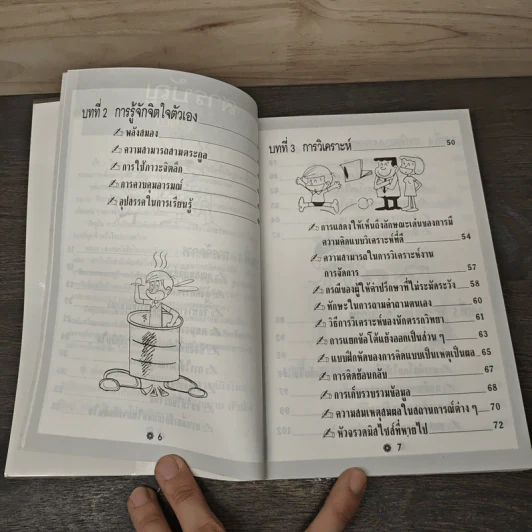 สารบัญ
บทที่ 2 การรู้จักจิตใจตัวเอง
พลังสมอง
ความสามารถสามตระกูล
การใช้ภาวะจิตลึก
การควบคุมอารมณ์
อุปสรรคในการเรียนรู้
6
บทที่ 3 การวิเคราะห์ 50
การแสดงให้เห็นถึงลักษณะเด่นของการมี
ความคิดแบบวิเคราะห์ที่ดี 54
ความสามารถในการวิเคราะห์งาน
การจัดการ 57
กรณีของผู้ให้คำปรึกษาที่ไม่ระมัดระวัง 58
ทักษะในการถามคำถามตนเอง 60
วิธีการวิเคราะห์ของนักตรรกวิทยา 61
การแยกข้อโต้แย้งออกเป็นส่วน ๆ 63
แบบฝึกหัดของการคิดแบบเป็นเหตุเป็นผล 65
การคิดย้อนกลับ 67
การเก็บรวบรวมข้อมูล 68
ความสมเหตุสมผลในสถานการณ์ต่าง ๆ 70
หัวจรวดมิสไซล์ที่หายไป 72
7